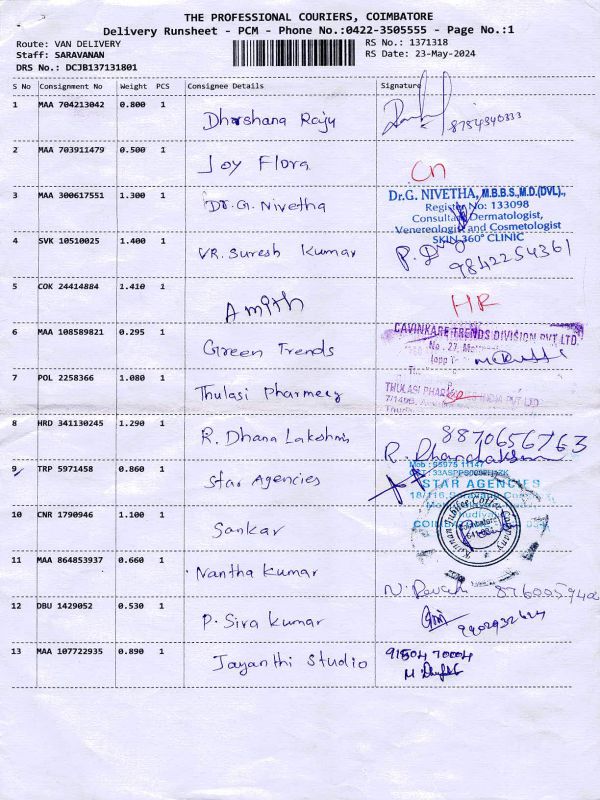 THE PROFESSIONAL COURIERS, COIMBATORE
Delivery Runsheet - PCM - Phone No.:0422-3505555 - Page No.:1
Route: VAN DELIVERY
RS No.: 1371318
Staff: SARAVANAN
RS Date: 23-May-2024
DRS No.: DCJB137131801
S No Consignment No Weight PCS Consignee Details Signature
1 MAA 704213042 0.800 1 Dharshana Raju 8754340333
2 MAA 703911479 0.500 1 Joy Flora Cn
3 MAA 300617551 1.300 1 Dr.G. Nivetha
Dr.G. NIVETHA, M.B.B.S.,M.D.(DVL).,
Register No: 133098
Consultant Dermatologist,
Venereologist and Cosmetologist
SKIN 360° CLINIC
4 SVK 10510025 1.400 1 VR. Suresh Kumar 9842254361
5 COK 24414884 1.410 1 Amith HR
6 MAA 108589821 0.295 1 Green Trends
CAVINKARE TRENDS DIVISION PVT LTD
No. 27,
7 POL 2258366 1.080 1 Thulasi Pharmacy
THULASI PHARMACIES INDIA PVT LTD
8 HRD 341130245 1.290 1 R. Dhana Lakshmi 8870656763
R. Dhanalakshmi
9 TRP 5971458 0.860 1 Star Agencies
STAR AGENCIES
10 CNR 1790946 1.100 1 Sankar
11 MAA 864853937 0.660 1 Nantha Kumar
12 DBU 1429052 0.530 1 P. Siva Kumar
13 MAA 107722935 0.890 1 Jayanthi Studio 91504 70004